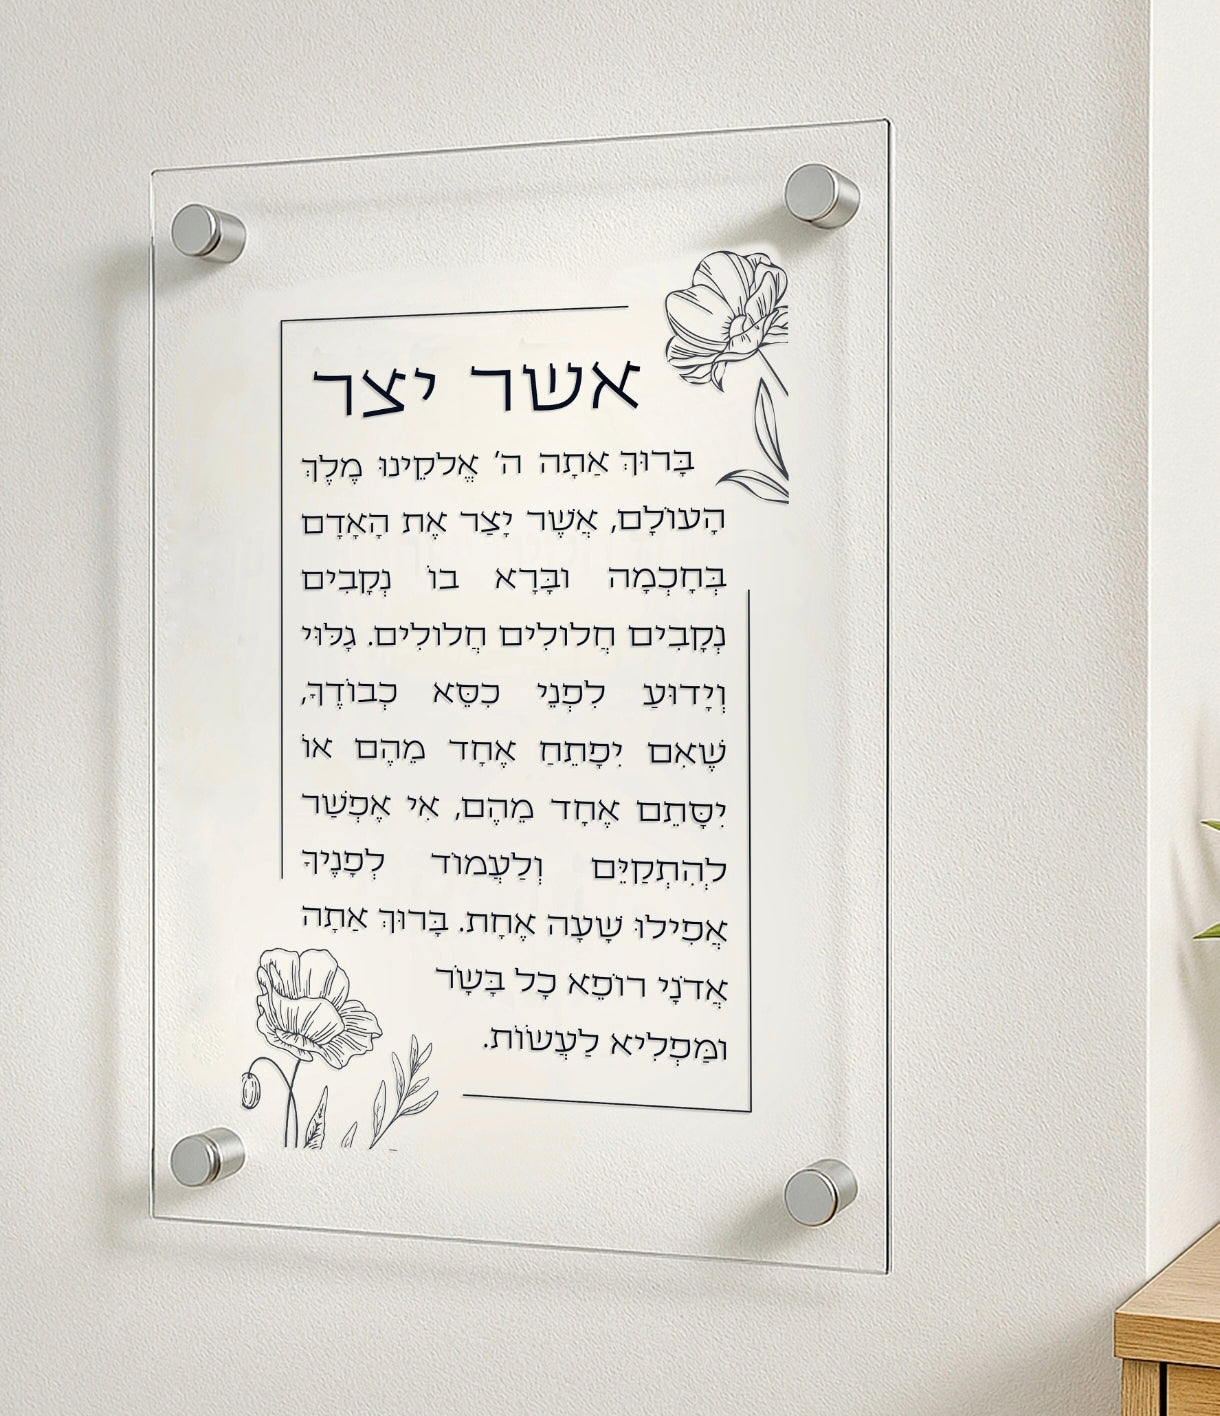 אשר יצר
בָּרוּךְ אַתָּה ה' אֱלֹקֵינוּ מֶלֶךְ
הָעוֹלָם, אֲשֶׁר יָצַר אֶת הָאָדָם
בְּחָכְמָה וּבָרָא בוֹ נְקָבִים
נְקָבִים חֲלוּלִים חֲלוּלִים. גָּלוּי
וְיָדוּעַ לִפְנֵי כִסֵּא כְבוֹדֶךָ,
שֶׁאִם יִפָּתֵחַ אֶחָד מֵהֶם אוֹ
יִסָּתֵם אֶחָד מֵהֶם, אִי אֶפְשַׁר
לְהִתְקַיֵּם וְלַעֲמוֹד לְפָנֶיךָ
אֲפִילוּ שָׁעָה אֶחָת. בָּרוּךְ אַתָּה
אֲדֹנָי רוֹפֵא כָל בָּשָׂר
וּמַפְלִיא לַעֲשׂוֹת.